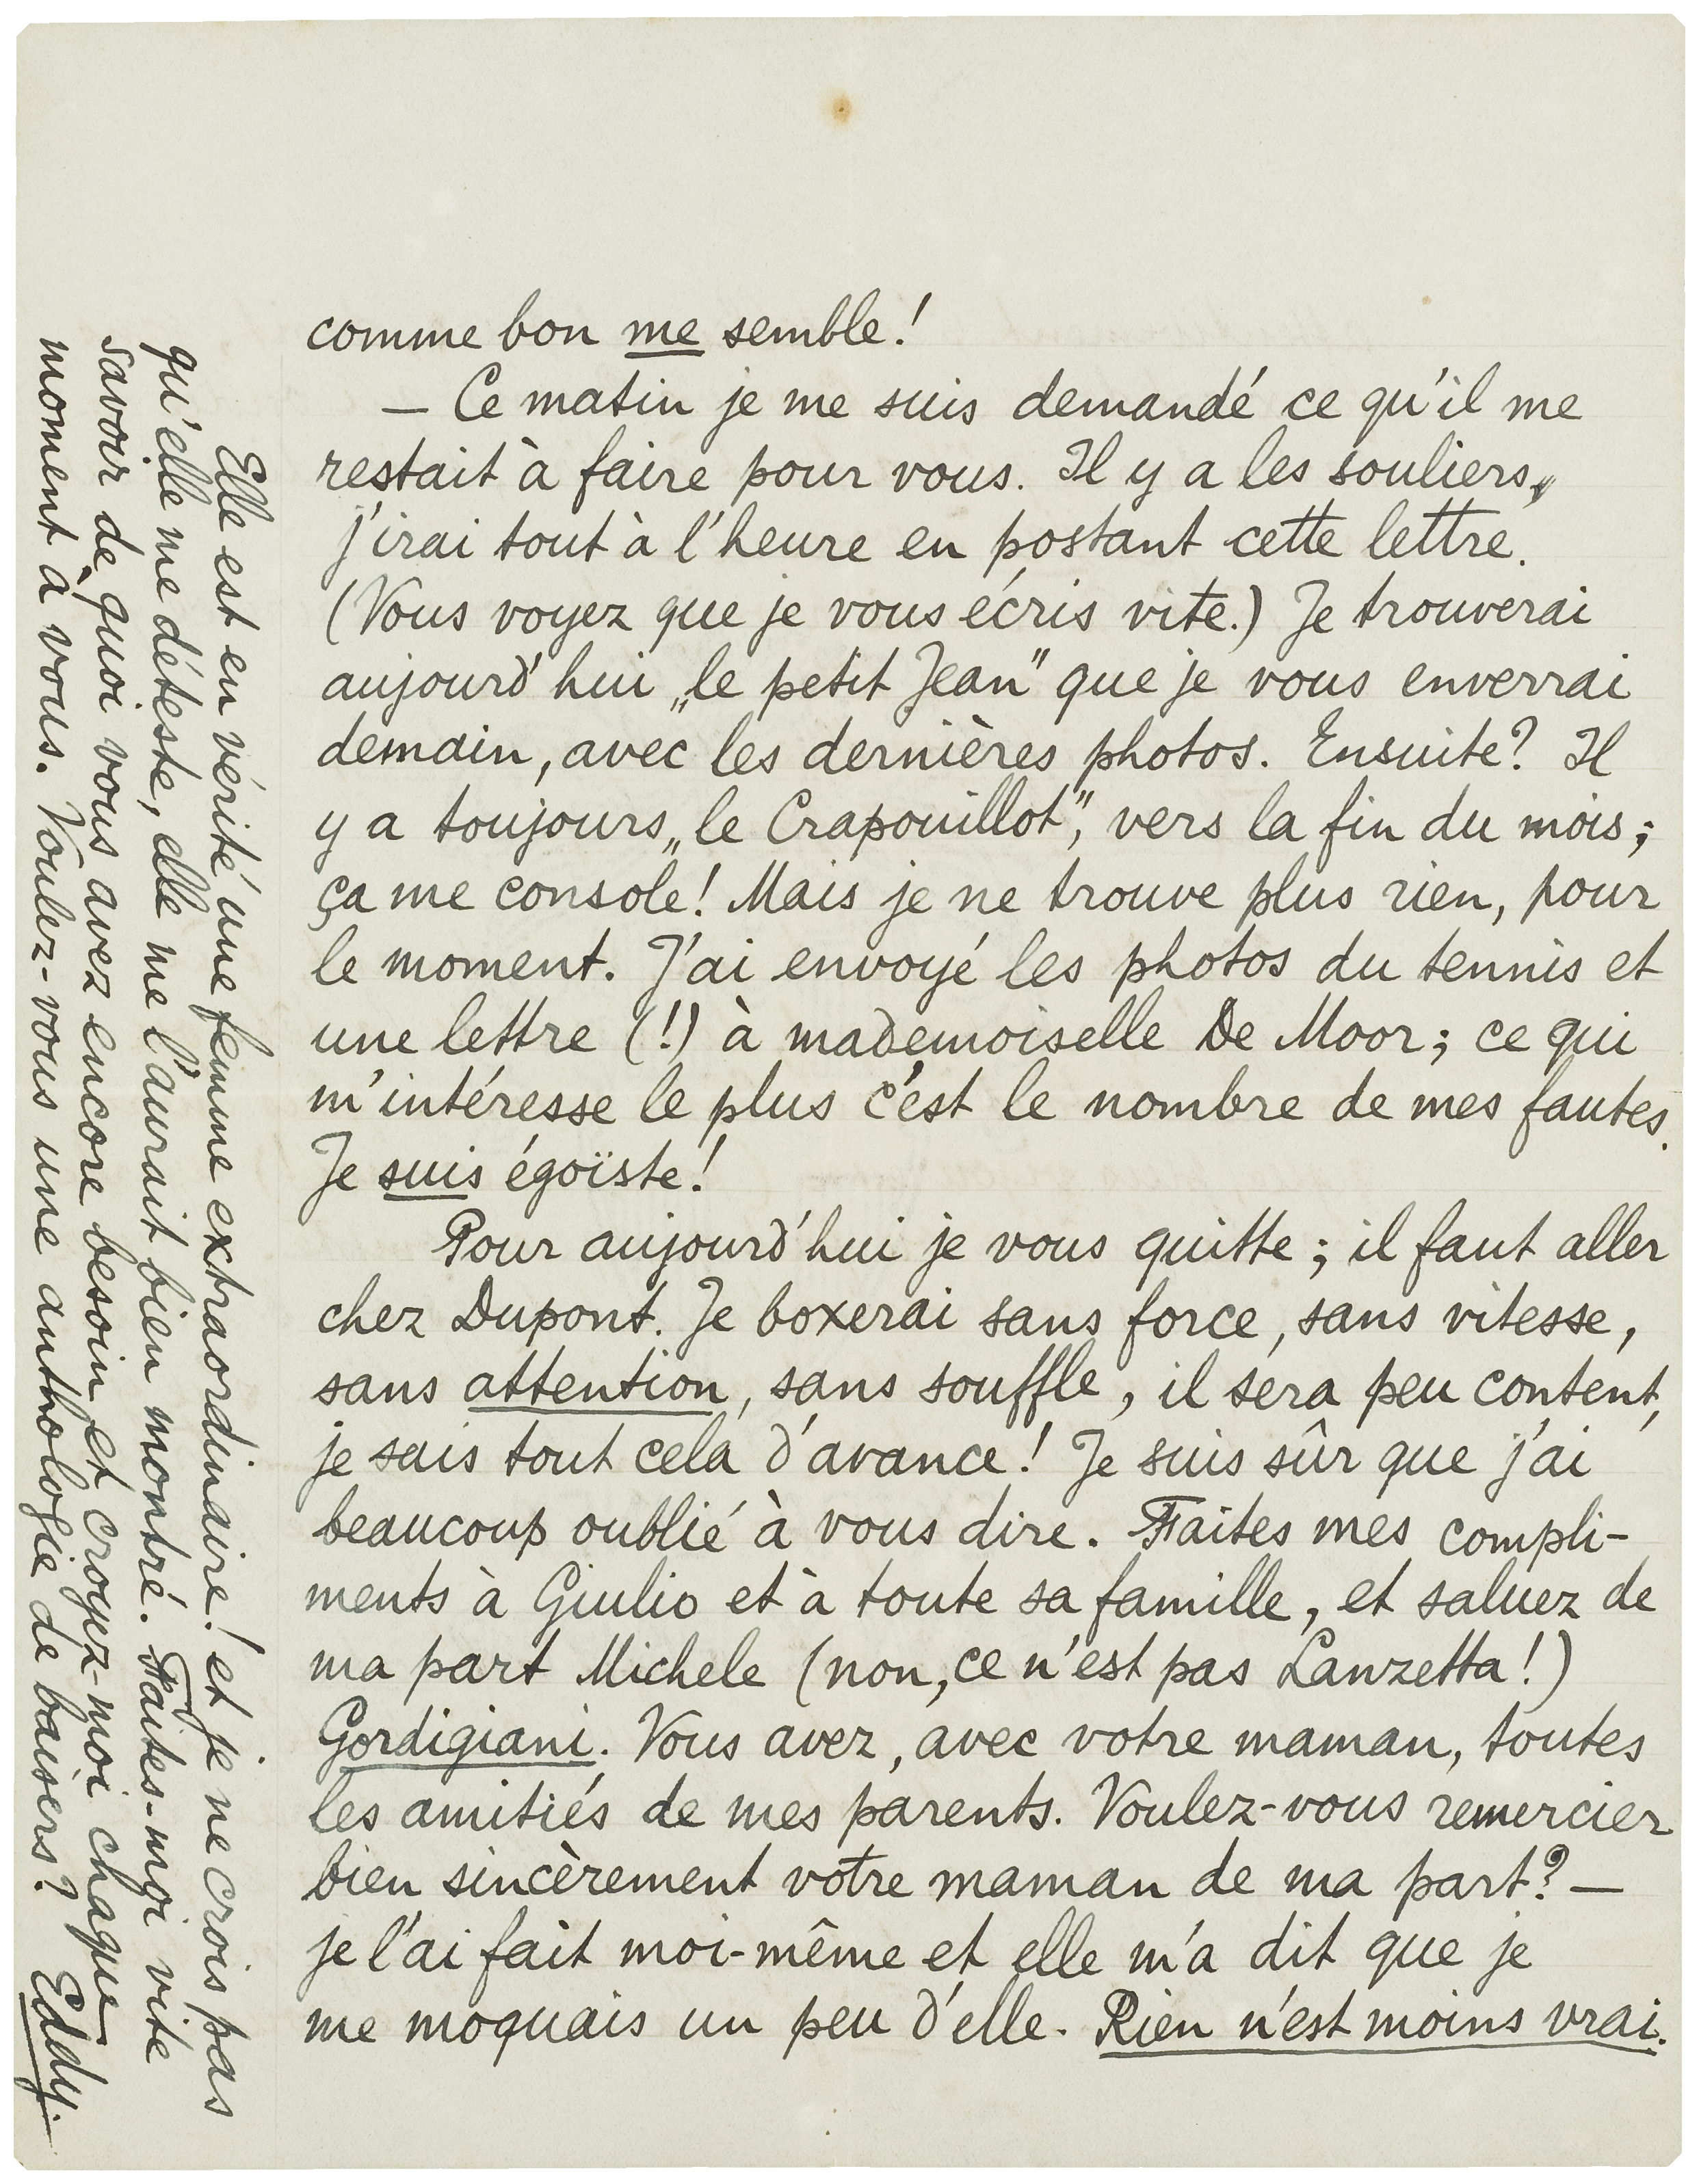 comme bon me semble!
— Ce matin je me suis demandé ce qu'il me
restait à faire pour vous. Il y a les souliers,
j'irai tout à l'heure en postant cette lettre.
(Vous voyez que je vous écris vite.) Je trouverai
aujourd'hui „le petit Jean" que je vous enverrai
demain, avec les dernières photos. Ensuite? Il
y a toujours „le Crapouillot", vers la fin du mois;
ça me console! Mais je ne trouve plus rien, pour
le moment. J'ai envoyé les photos du tennis et
une lettre (!) à mademoiselle De Moor; ce qui
m'intéresse le plus c'est le nombre de mes fautes.
Je suis égoïste!
Pour aujourd'hui je vous quitte; il faut aller
chez Dupont. Je boxerai sans force, sans vitesse,
sans attention, sans souffle, il sera peu content,
je sais tout cela d'avance! Je suis sûr que j'ai
beaucoup oublié à vous dire. Faites mes compli-
ments à Giulio et à toute sa famille, et saluez de
ma part Michele (non, ce n'est pas Lanzetta!)
Gordigiani. Vous avez, avec votre maman, toutes
les amitiés de mes parents. Voulez-vous remercier
bien sincèrement votre maman de ma part? —
je l'ai fait moi-même et elle m'a dit que je
me moquais un peu d'elle. Rien n'est moins vrai.
Elle est en vérité une femme extraordinaire! et je ne crois pas
qu'elle me déteste, elle me l'aurait bien montré. Faites-moi vite
savoir de quoi vous avez encore besoin et croyez-moi chaque
moment à vous. Voulez-vous une anthologie de baisers? Eddy.